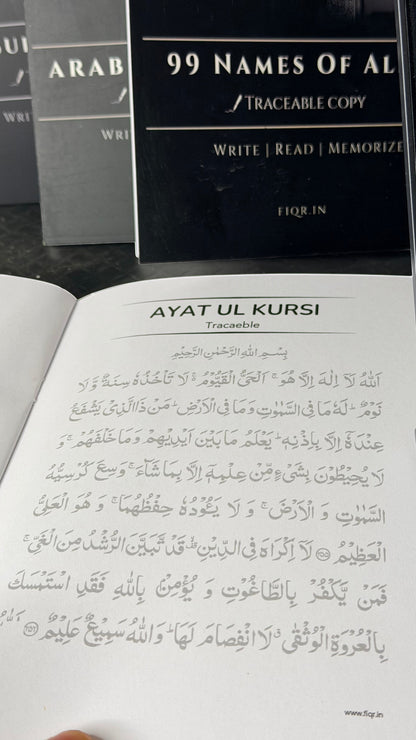 ARAB
WRI
WRI
99 NAMES OF AL
TRACEABLE COPY
WRITE | READ | MEMORIZE
FIQR.IN
AYAT UL KURSI
Tracaeble
بِسْمِ اللهِ الرَّحْمٰنِ الرَّحِيْمِ
اَللّٰهُ لَآ اِلٰهَ اِلَّا هُوَ ۚ اَلْحَىُّ الْقَيُّوْمُ ۚ لَا تَاْخُذُهٗ سِنَةٌ وَّ لَا
نَوْمٌ ؕ لَهٗ مَا فِى السَّمٰوٰتِ وَ مَا فِى الْاَرْضِ ؕ مَنْ ذَا الَّذِىْ يَشْفَعُ
عِنْدَهٗٓ اِلَّا بِاِذْنِهٖ ؕ يَعْلَمُ مَا بَيْنَ اَيْدِيْهِمْ وَمَا خَلْفَهُمْ ۚ وَ
لَا يُحِيْطُوْنَ بِشَىْءٍ مِّنْ عِلْمِهٖٓ اِلَّا بِمَا شَآءَ ۚ وَسِعَ كُرْسِيُّهُ
السَّمٰوٰتِ وَ الْاَرْضَ ۚ وَ لَا يَـُٔوْدُهٗ حِفْظُهُمَا ۚ وَ هُوَ الْعَلِىُّ
الْعَظِيْمُ ﴿۲۵۵﴾ لَآ اِكْرَاهَ فِى الدِّيْنِ ۙ قَدْ تَّبَيَّنَ الرُّشْدُ مِنَ الْغَىِّ ۚ
فَمَنْ يَّكْفُرْ بِالطَّاغُوْتِ وَ يُؤْمِنْۢ بِاللّٰهِ فَقَدِ اسْتَمْسَكَ
بِالْعُرْوَةِ الْوُثْقٰى ۗ لَا انْفِصَامَ لَهَا ؕ وَاللّٰهُ سَمِيْعٌ عَلِيْمٌ ﴿۲۵۶﴾
www.fiqr.in